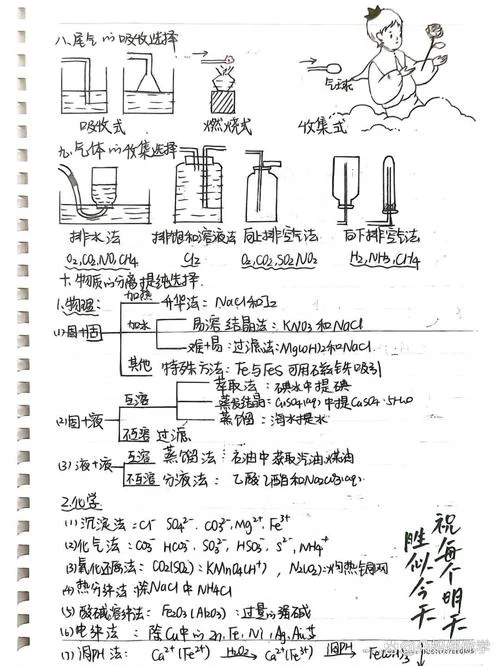 八、尾气的吸收选择
气球
吸收式 燃烧式 收集式
九、气体的收集选择
排水法 排饱和溶液法 向上排空气法 向下排空气法
O2,CO2,NO,CH4 Cl2 O2,CO2,SO2,NO2 H2,NH3,CH4
十、物质的分离提纯选择.
1.物理:
(1)固+固
加热 升华法: NaCl和I2
加水 易溶 结晶法: KNO3和NaCl
难+易: 过滤法: Mg(OH)2和NaCl.
其他 特殊方法: Fe与FeS 可用磁铁吸引
(2)固+液
互溶 萃取法: 碘水中提碘
蒸发结晶: CuSO4(aq)中提CuSO4·5H2O
蒸馏: 海水提水
不互溶 过滤.
(3)液+液 互溶 蒸馏法: 石油中萃取汽油,煤油
不互溶 分液法: 乙酸乙酯和Na2CO3(aq)
2.化学
(1)沉淀法: Cl- SO4²- CO3²- Mg²+ Fe³+
(2)化气法: CO3²- HCO3- SO3²- HSO3- S²- NH4+
(3)氧化还原法: CO2(SO2): KMnO4(H+), N2(O2):灼热铜网
(4)热分解法: 除NaCl中NH4Cl
(5)酸碱溶解法: Fe2O3(Al2O3): 过量的强碱
(6)电解法: 除Cu中的Zn, Fe, Ni, Ag, Au等
(7)调PH法: Ca²+(Fe²+) H2O2 Ca²+(Fe³+) 调PH
祝每个明天
胜似今天